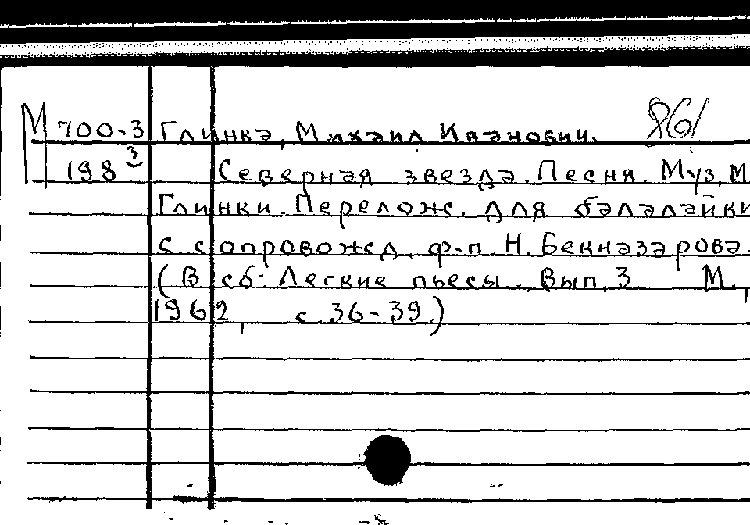 М 700-3 Глинка, Михаил Иванович. 861
198 3 Северная звезда. Песня. Муз. М
Глинки. Перелож. для балалайки
с сопровожд. ф-п. Н. Бекназарова.
(В сб: Легкие пьесы. Вып. 3 М.,
1962, с. 36-39.)